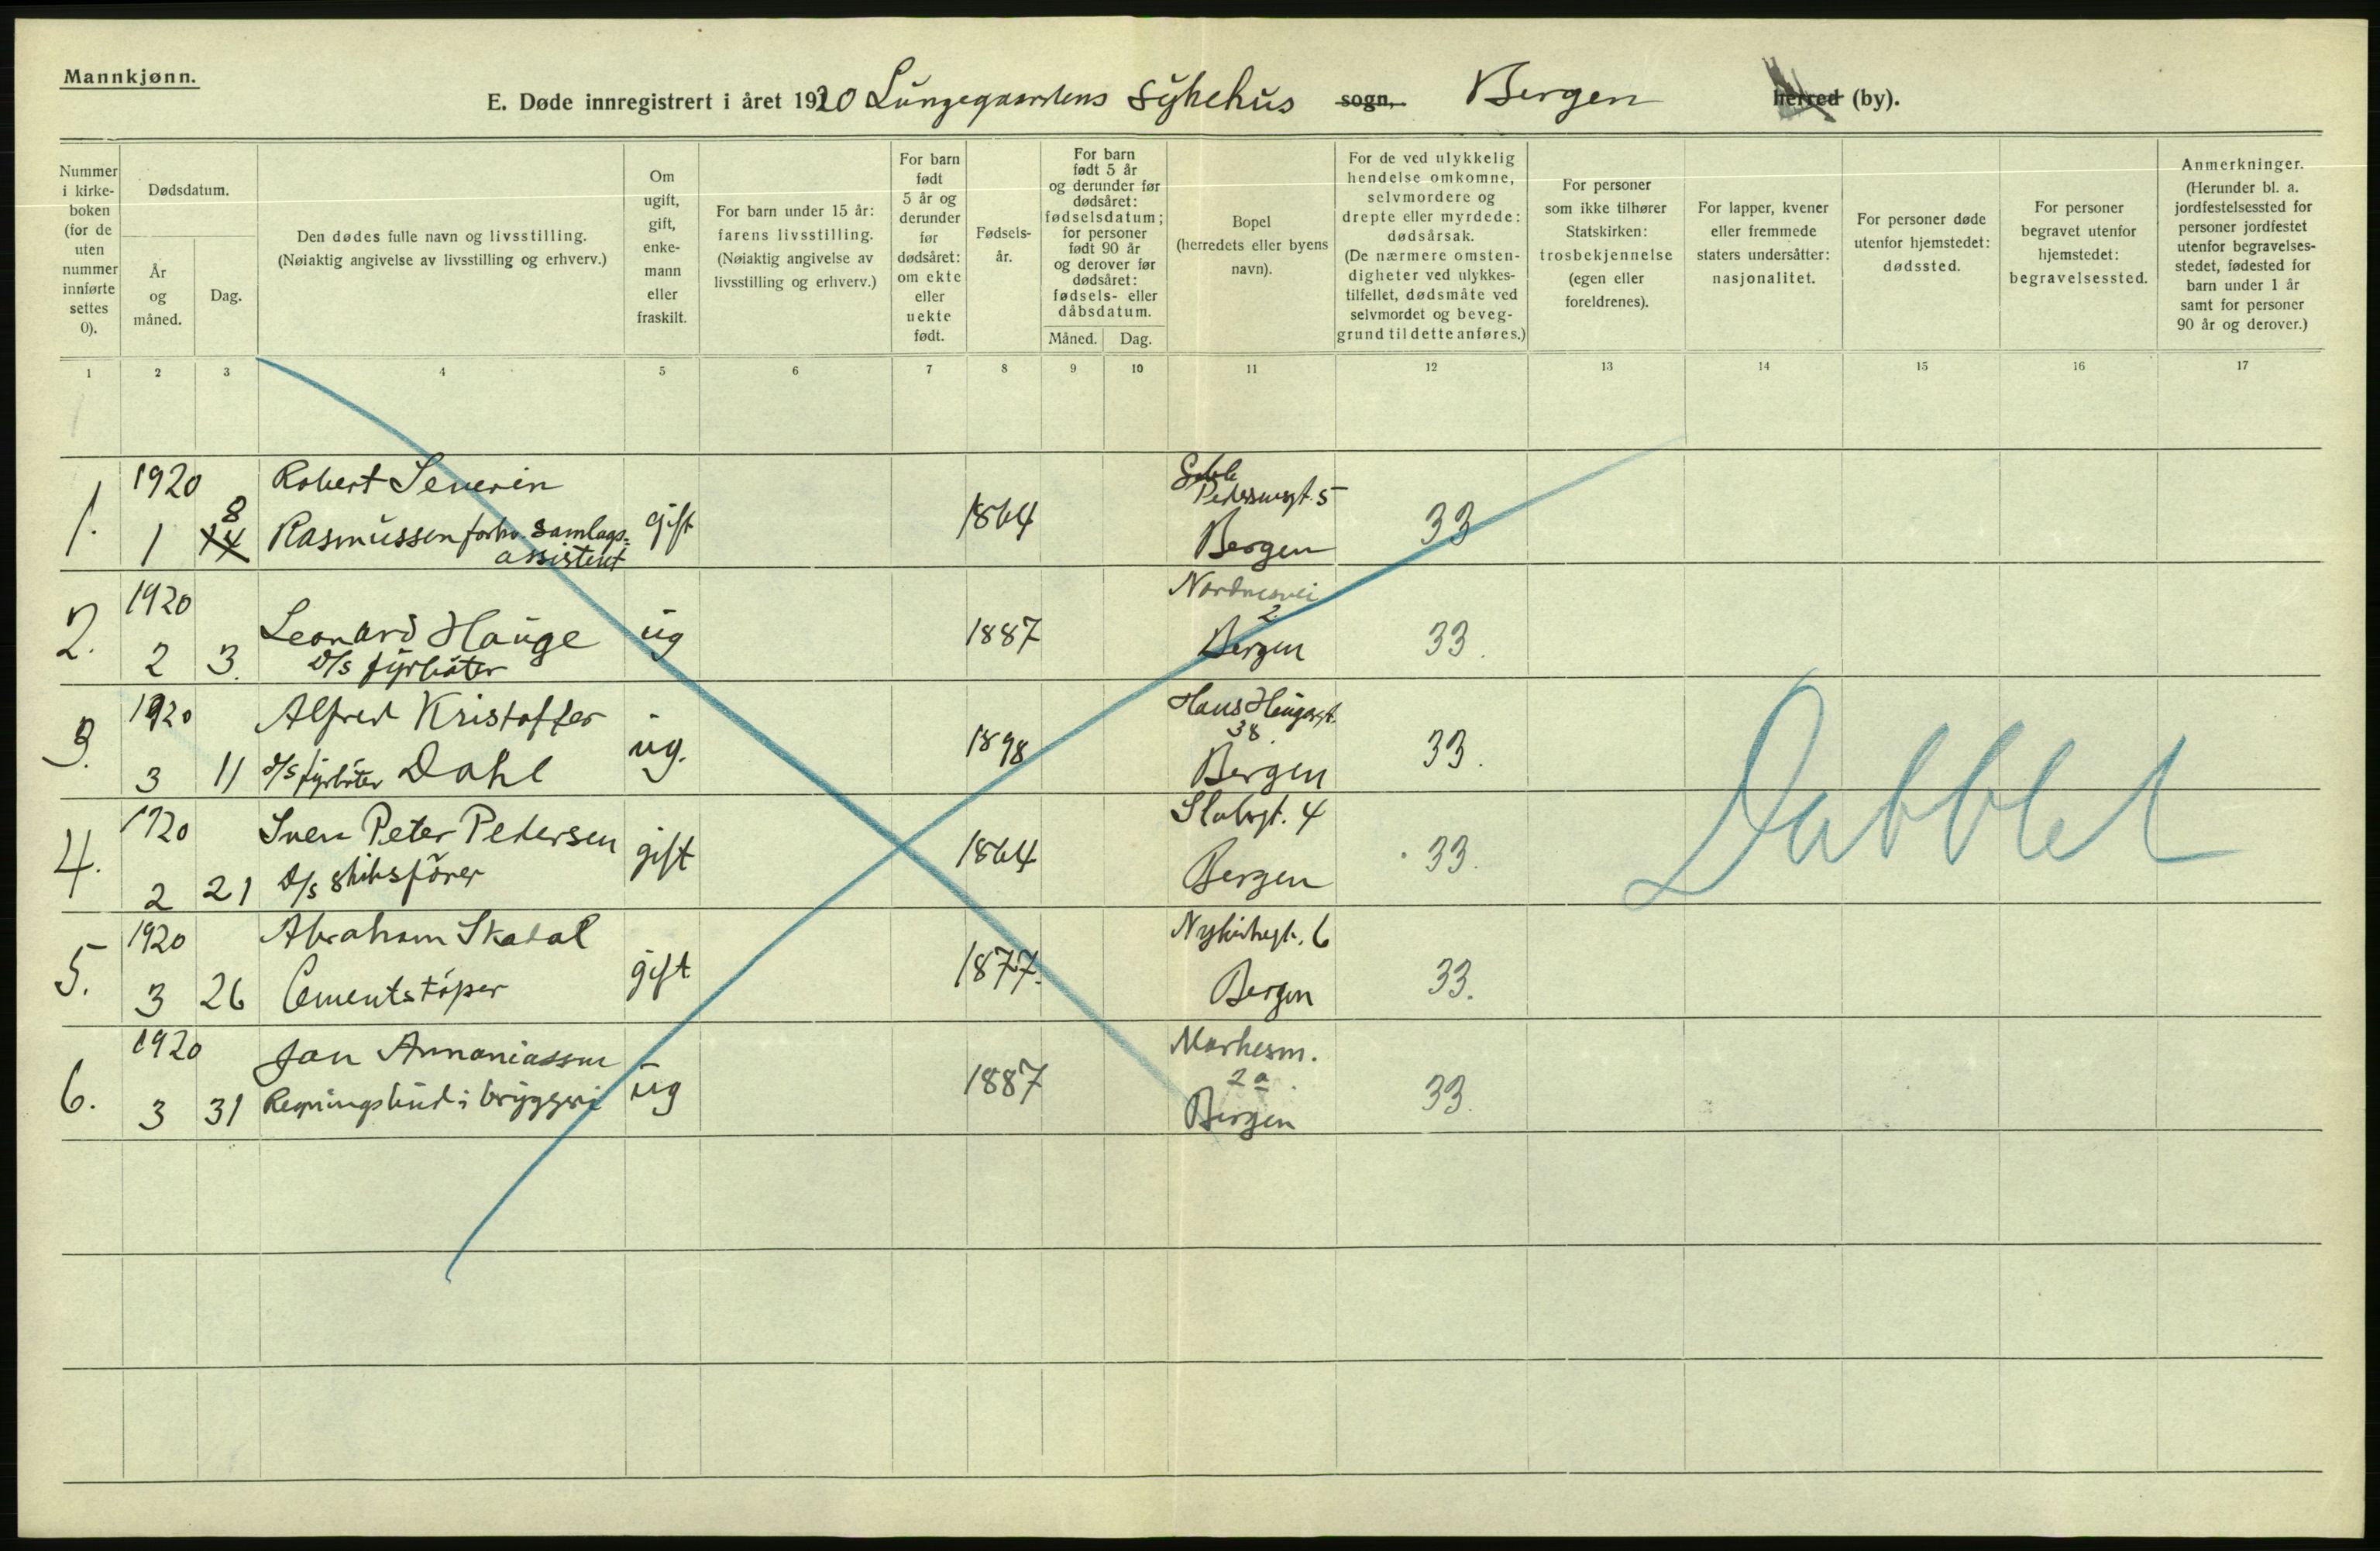 Mannkjønn.
E. Døde innregistrert i året 1920 Lungegaardens sykehus sogn, Bergen herred (by).
Nummer i kirke- boken (for de uten nummer innførte settes 0).
Dødsdatum.
År og måned.
Dag.
Den dødes fulle navn og livsstilling.
(Nøiaktig angivelse av livsstilling og erhverv.)
Om ugift, gift, enke- mann eller fraskilt.
For barn under 15 år: farens livsstilling.
(Nøiaktig angivelse av livsstilling og erhverv.)
For barn født 5 år og derunder før dødsåret: om ekte eller uekte født.
Fødsels- år.
For barn født 5 år og derunder før dødsåret: fødselsdatum; for personer født 90 år og derover før dødsåret: fødsels- eller dåbsdatum.
Måned. Dag.
Bopel (herredets eller byens navn).
For de ved ulykkelig hendelse omkomne, selvmordere og drepte eller myrdede: dødsårsak.
(De nærmere omsten- digheter ved ulykkes- tilfellet, dødsmåte ved selvmordet og beveg- grund til dette anføres.)
For personer som ikke tilhører Statskirken: trosbekjennelse (egen eller foreldrenes).
For lapper, kvener eller fremmede staters undersåtter: nasjonalitet.
For personer døde utenfor hjemstedet: dødssted.
For personer begravet utenfor hjemstedet: begravelsessted.
Anmerkninger.
(Herunder bl. a. jordfestelsessted for personer jordfestet utenfor begravelses- stedet, fødested for barn under 1 år samt for personer 90 år og derover.)
1 2 3 4 5 6 7 8 9 10 11 12 13 14 15 16 17
1. 1920 1 14 8 Robert Severin
Rasmussen forhv. Samlags= assistent gift 1864 Pederssensgt. 5 Bergen 33
2. 1920 2 3. Leonard Hauge
D/s fyrbøter ug 1887 Nordnesvei 2 Bergen 33.
3. 1920 3 11 Alfred Kristoffer
D/s fyrbøter Dahl ug. 1898 Hans Haugesgt. 38. Bergen 33.
4. 1920 2 21 Sven Peter Pedersen
D/s skibsfører gift 1864 Bergen 33.
5. 1920 3 26 Abraham Skadal
Cementstøper gift 1877. Nykirkegt. 6 Bergen 33.
6. 1920 3 31 Jan Annaniassen
Regningsbud i bryggeri ug 1887 2a. Bergen 33.
Dubblet